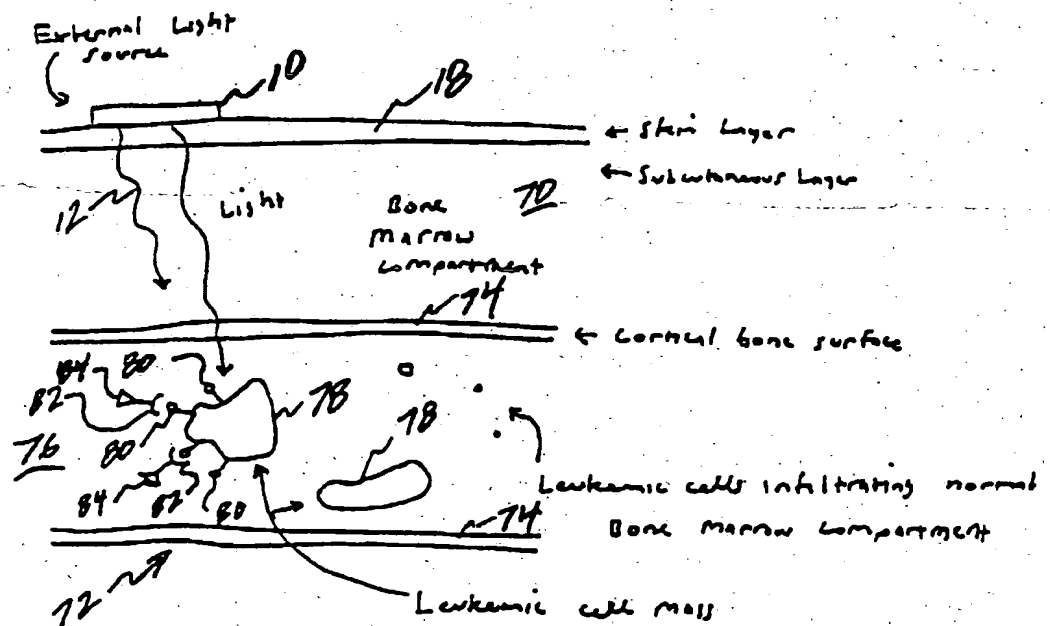 External Light
source
10
18
← Skin Layer
← Subcutaneous Layer
70
12
Light
Bone
Marrow
compartment
74
← cortical bone surface
84
80
82
78
76
80
78
84
82
80
Leukemic cells infiltrating normal
Bone Marrow compartment
74
72
Leukemic cell mass